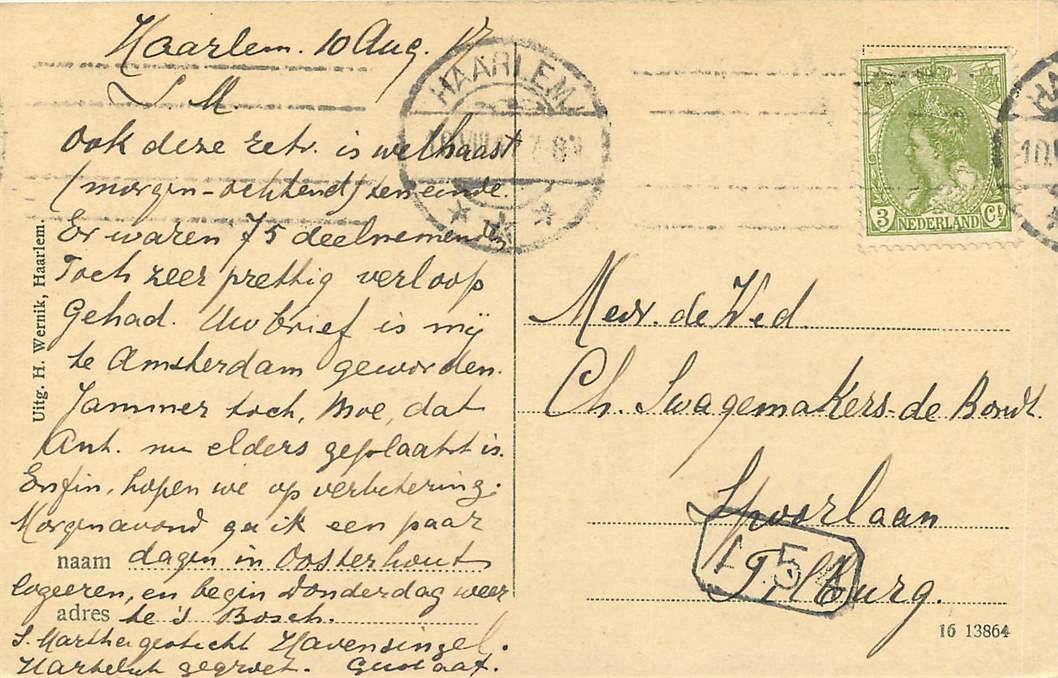 Haarlem. 10 Aug. 17
L M
Ook deze retr. is welhaast
(morgen-ochtend) ten einde
Er waren 75 deelnemers
Toch zeer prettig verloop
Gehad. Uw brief is mij
te Amsterdam geworden.
Jammer toch, Moe, dat
Ant. nu elders geplaatst is.
Enfin, hopen we op verbetering.
Morgenavond ga ik een paar
dagen in Oosterhout
logeeren, en begin Donderdag weer
te 's Bosch.
S. Marthagesticht Havensingel.
Hartelijk gegroet. Gustaaf.
naam
adres
Uitg. H. Wernik, Haarlem.
HAARLEM
3 NEDERLAND Ct
Mevr. de Wed.
Ch. Swagemakers-de Bondt.
Spoorlaan
Tilburg.
5
16 13864